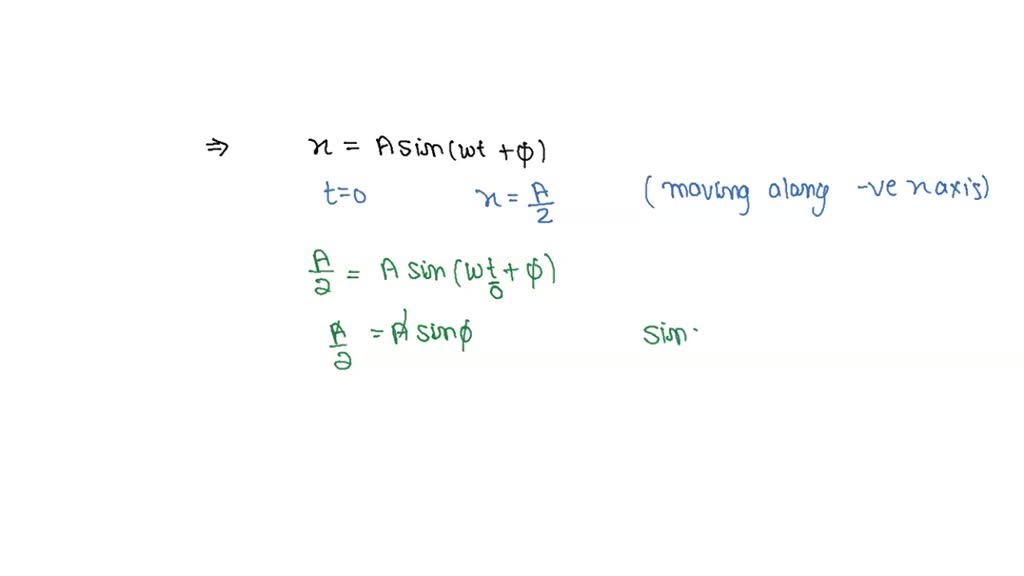 ⇒ x = A sin(ωt + ϕ)
t=0 x = A/2 (moving along -ve x axis)
A/2 = A sin(ωt + ϕ)
0
A/2 = A sinϕ sin